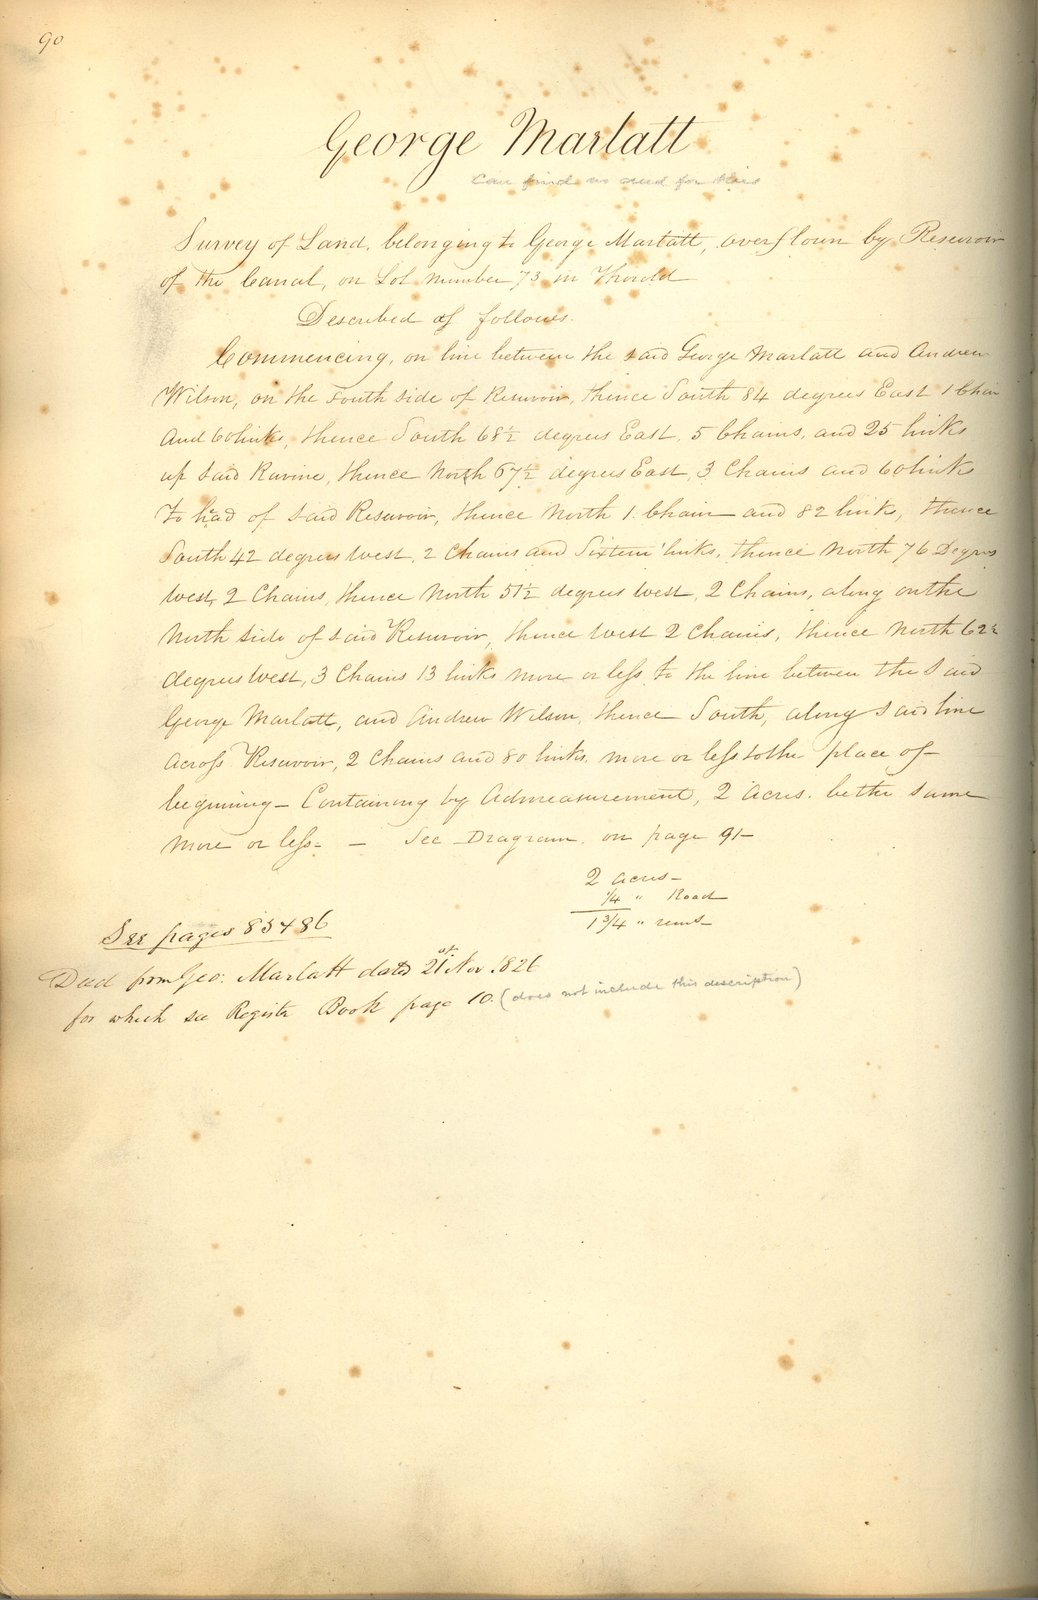 90
George Marlatt
Can find no deed for this
Survey of Land, belonging to George Marlatt, overflown by Reservoir
of the Canal, on Lot number 73 in Thorold
Described as follows.
Commencing, on line between the said George Marlatt and Andrew
Wilson, on the South side of Reservoir, thence South 84 degrees East 1 Chain
and 60 links, thence South 68½ degrees East, 5 Chains, and 25 links
up said Ravine, thence North 67½ degrees East, 3 Chains and 60 links
to head of said Reservoir, thence North 1 Chain and 82 links, thence
South 42 degrees West, 2 Chains and Sixteen links, thence North 76 Degrees
West, 2 Chains, thence North 51½ degrees West, 2 Chains, along on the
North side of said Reservoir, thence West 2 Chains, thence North 62½
degrees West, 3 Chains 13 links more or less to the line between the Said
George Marlatt, and Andrew Wilson, thence South, along said line
across Reservoir, 2 Chains and 80 links more or less to the place of
begining – Containing by Admeasurement, 2 acres. be the same
more or less – – See Diagram on page 91 –
2 acres –
¼ " Road
1 3/4 " rems
See pages 85 & 86
Deed from Geo: Marlatt dated 21st Nov. 1826
for which see Register Book page 10. (does not include this description)